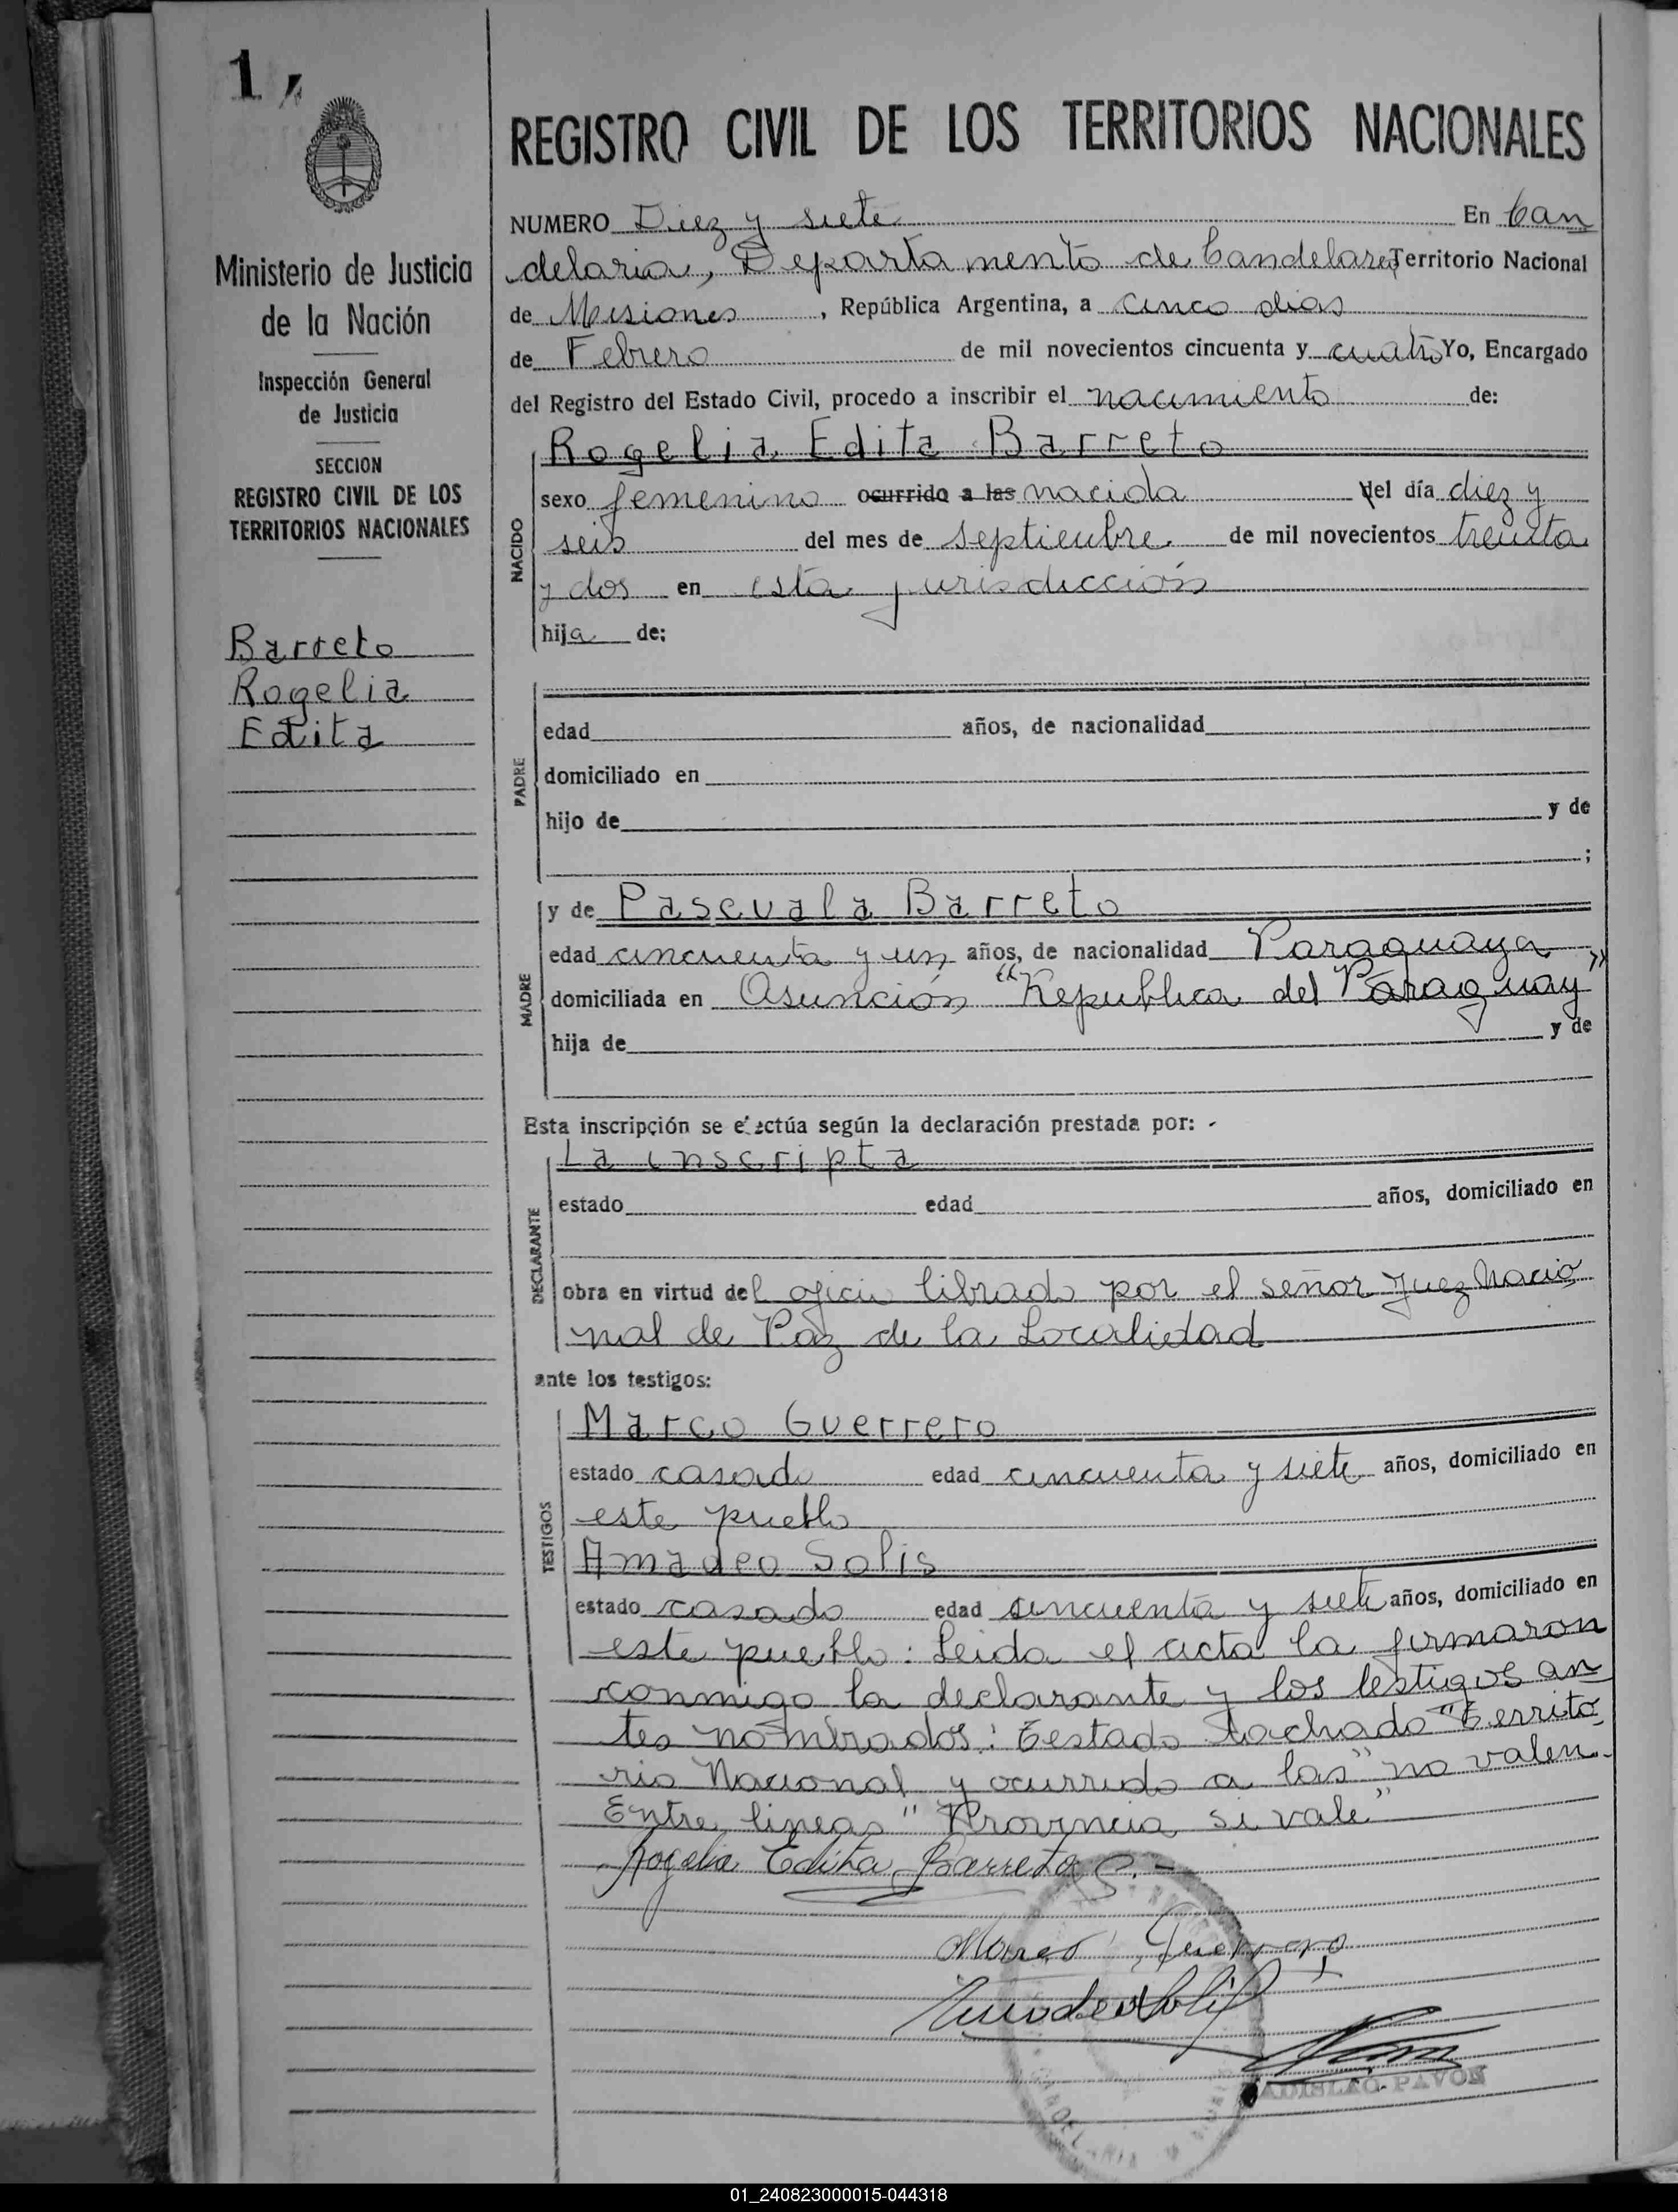 1
REGISTRO CIVIL DE LOS TERRITORIOS NACIONALES
Ministerio de Justicia
de la Nación
Inspección General
de Justicia
SECCION
REGISTRO CIVIL DE LOS
TERRITORIOS NACIONALES
Barreto
Rogelia
Edita
NUMERO Diez y siete En Can
delaria, Departamento de Candelaria, Territorio Nacional
de Misiones, República Argentina, a cinco dias
de Febrero de mil novecientos cincuenta y cuatro Yo, Encargado
del Registro del Estado Civil, procedo a inscribir el nacimiento de:
Rogelia Edita Barreto
NACIDO
sexo femenino ocurrido a las nacida del día diez y
seis del mes de septiembre de mil novecientos treinta
y dos en esta jurisdicción
hija de:
PADRE
edad años, de nacionalidad
domiciliado en
hijo de y de
;
MADRE
y de Pascuala Barreto
edad cincuenta y un años, de nacionalidad Paraguaya
domiciliada en Asunción "Republica del Paraguay"
hija de y de
Esta inscripción se efectúa según la declaración prestada por: -
DECLARANTE
La inscripta
estado edad años, domiciliado en
obra en virtud del oficio librado por el señor Juez Nacio
nal de Paz de la Localidad
ante los testigos:
TESTIGOS
Marco Guerrero
estado casado edad cincuenta y siete años, domiciliado en
este pueblo
Amadeo Solis
estado casado edad cincuenta y siete años, domiciliado en
este pueblo: Leida el acta la firmaron
conmigo la declarante y los testigos an
tes nombrados: Testado tachado "Territo
rio Nacional y ocurrido a las" no valen.
Entre lineas "Provincia si vale"
Rogelia Edita Barreto
Marco Guerrero
Amadeo Solis
LADISLAO PAVON
01_240823000015-044318